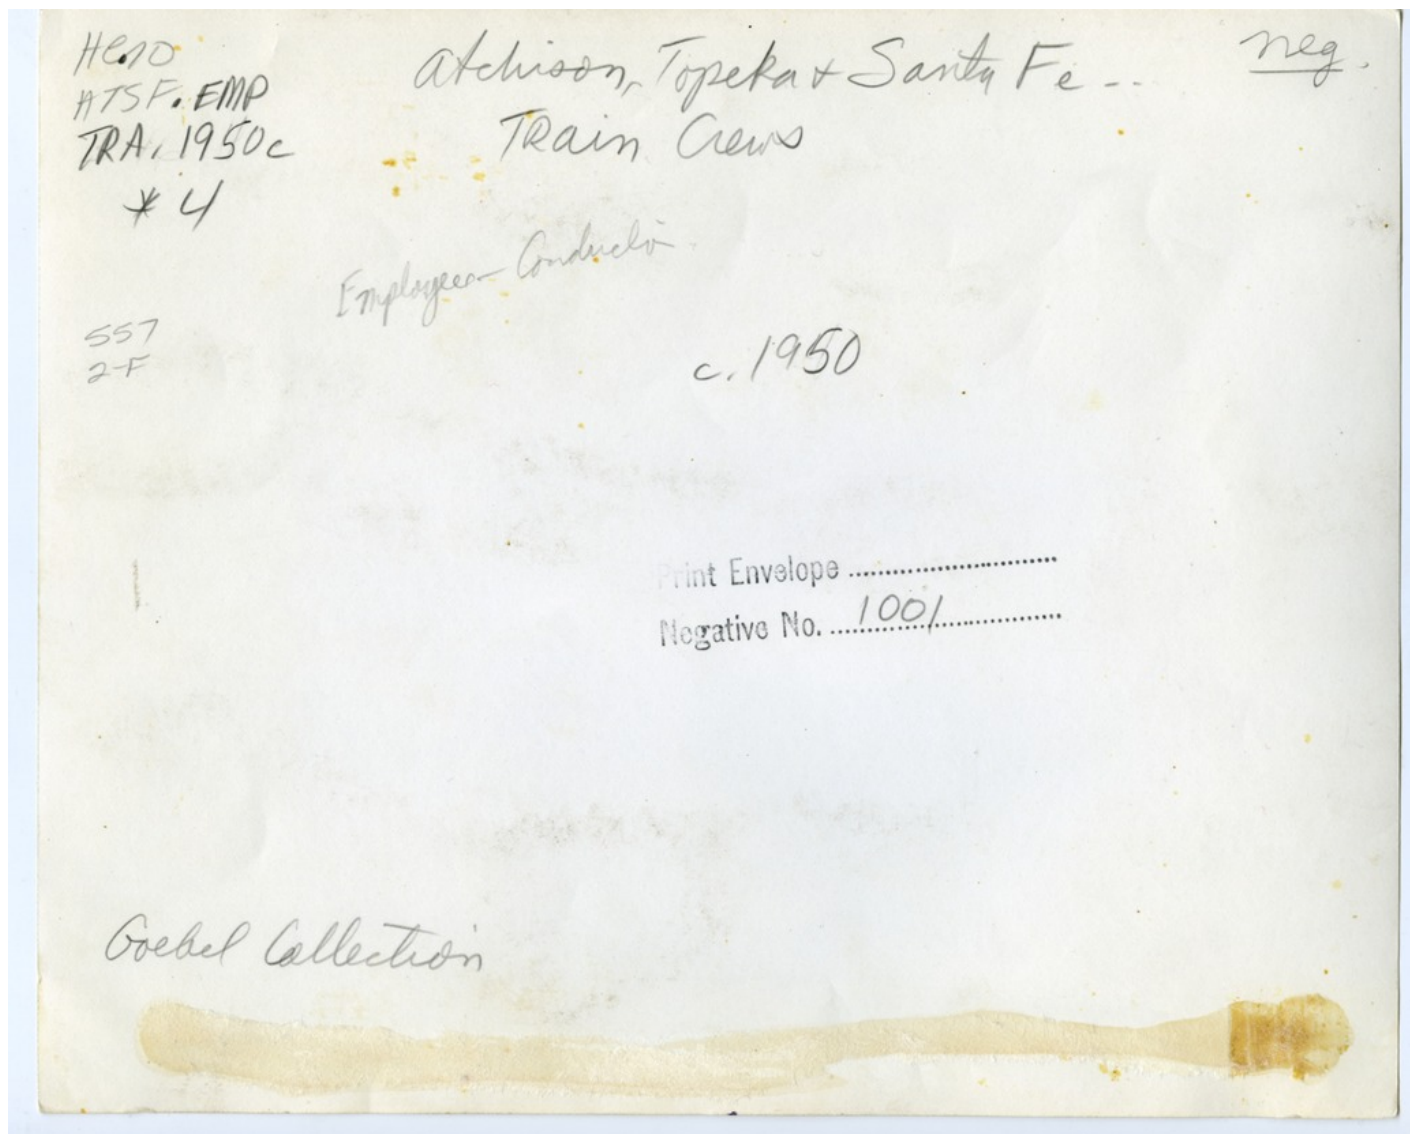 HE.10
ATSF. EMP
TRA. 1950c
* 4
Atchison, Topeka + Santa Fe --
Train Crews
neg.
Employees - Conductor
557
2-F
c. 1950
Print Envelope ........................................
Negative No. ....1001........................
Goebel Collection